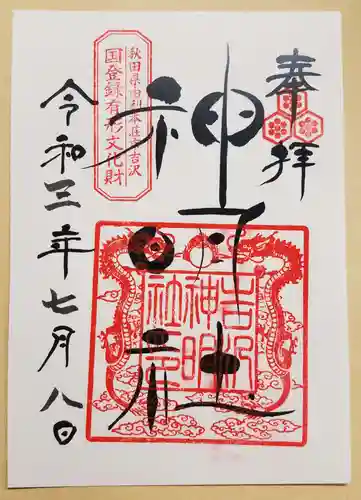 奉拝
神明社
秋田県由利本荘市吉沢
国登録有形文化財
吉沢
神明
社印
令和三年七月八日